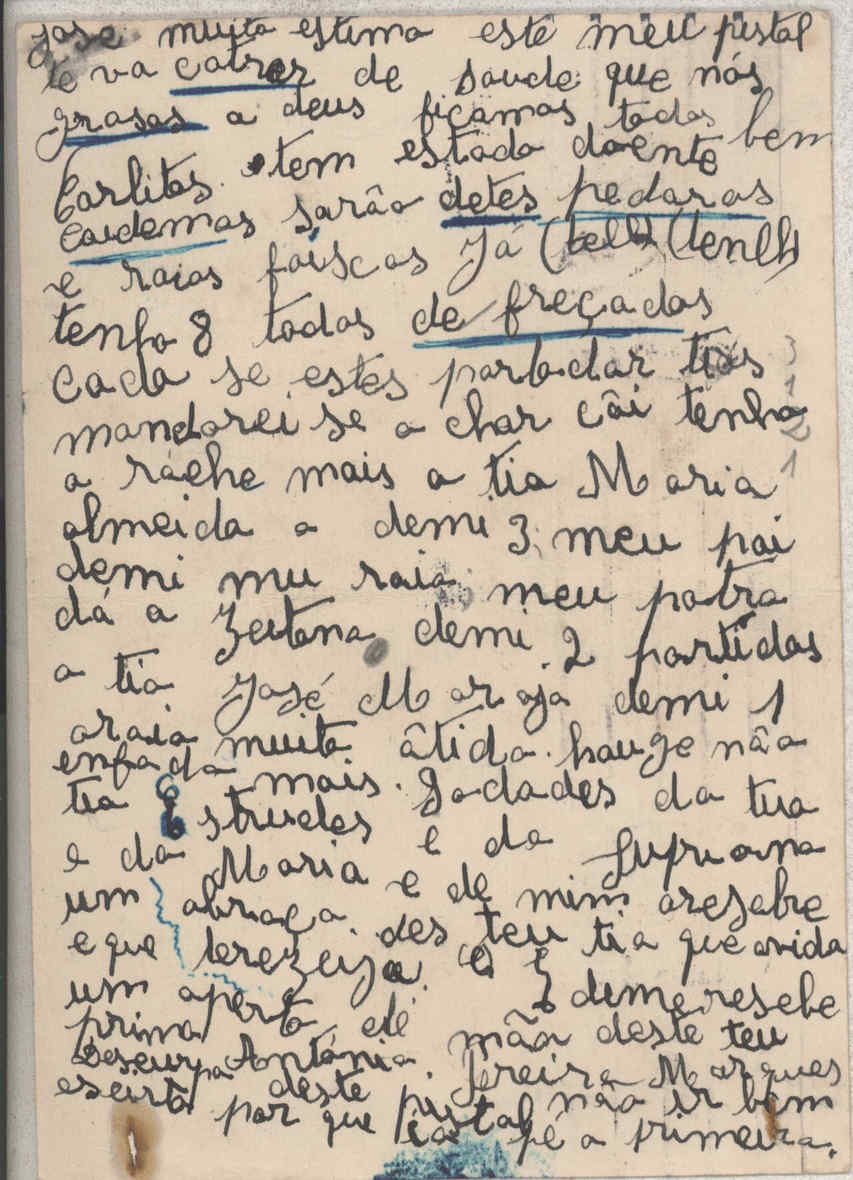 José muita estimo este meu pustal
te va catrar de saude que nós
grasas a deus ficamos todos bem
Carlitos tem estado doente
Caidemas sarão detes pedaras
e raios faiscas Já (tell (tenlh
tenho 8 todos de freçados
cada se estes parbdar tias
mandarei se a char câi tenha
a rache mais a tia Maria
almeida a demi 3 meu pai
demi mu raia meu patra
dá a Zeutana demi 2 partidas
a tia José Maraja demi 1
araia muita âtida hauge não
enfada mais. Sadades da tua
tia Estrudes
e da Maria e da Gupruana
um abraça e de mim aresebe
e que terezeija. des teu tia que avida
um aperto de mão deste teu
prima António Pereira Marques
Deseurpa deste pustal não ir bem
escirto por que foi pé a primeira.